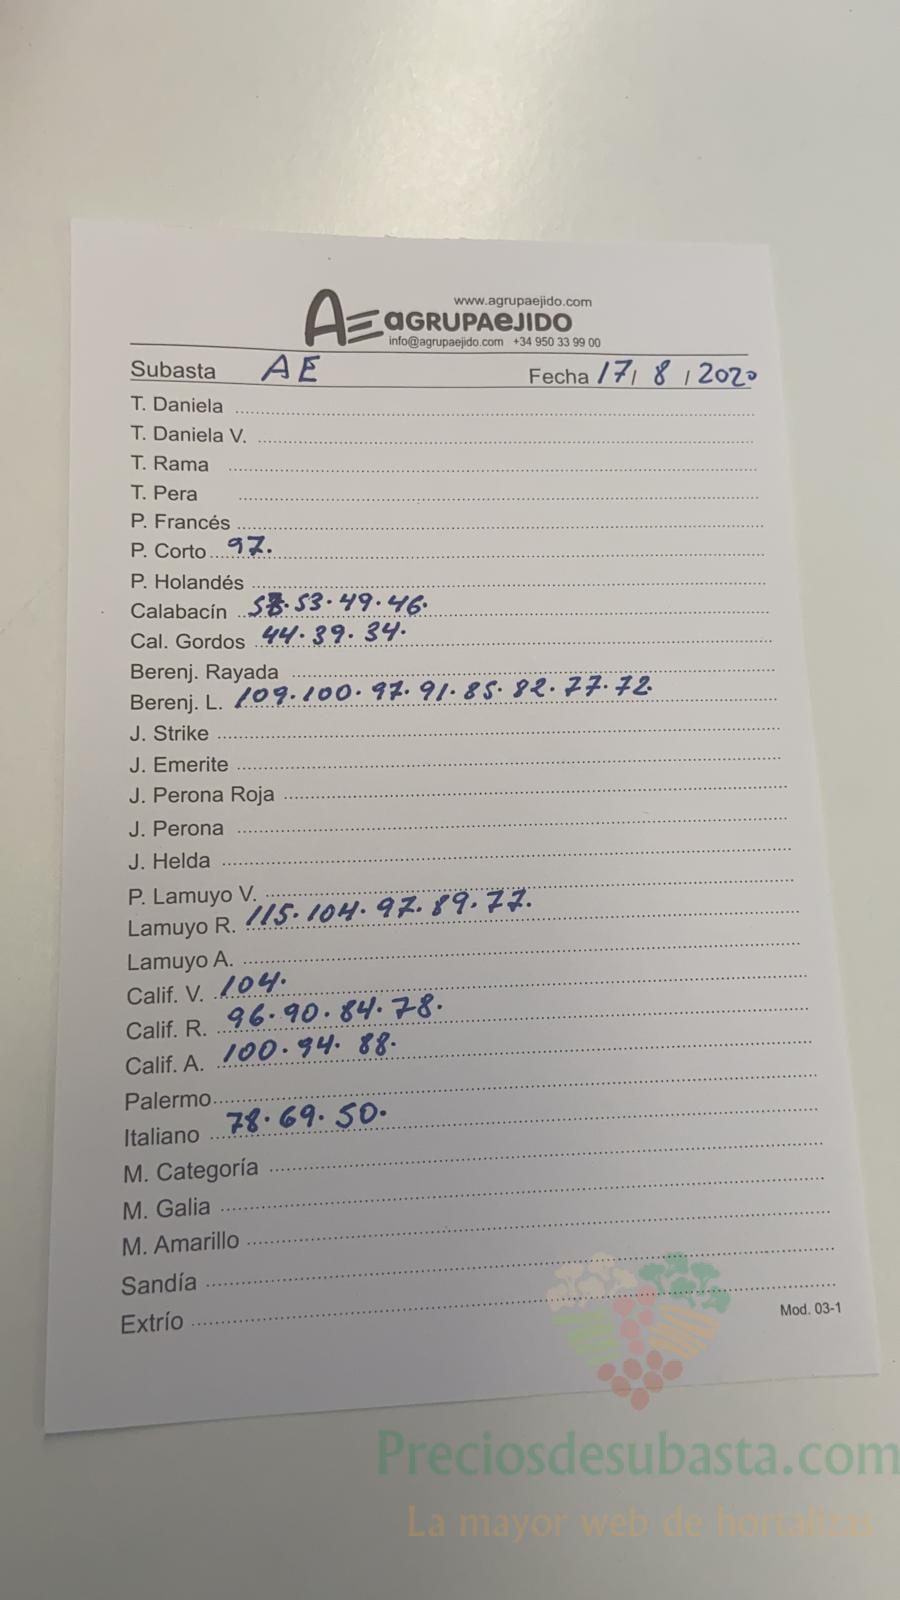 www.agrupaejido.com
AE AGRUPAEJIDO
info@agrupaejido.com +34 950 33 99 00
Subasta AE Fecha 17/ 8 / 2020
T. Daniela
T. Daniela V.
T. Rama
T. Pera
P. Francés
P. Corto 97.
P. Holandés
Calabacín 53. 49. 46.
Cal. Gordos 44. 39. 34.
Berenj. Rayada
Berenj. L. 109. 100. 97. 91. 85. 82. 77. 72.
J. Strike
J. Emerite
J. Perona Roja
J. Perona
J. Helda
P. Lamuyo V.
Lamuyo R. 115. 104. 97. 89. 77.
Lamuyo A.
Calif. V. 104.
Calif. R. 96. 90. 84. 78.
Calif. A. 100. 94. 88.
Palermo
Italiano 78. 69. 50.
M. Categoría
M. Galia
M. Amarillo
Sandía
Extrío
Mod. 03-1
Preciosdesubasta.com
La mayor web de hortalizas